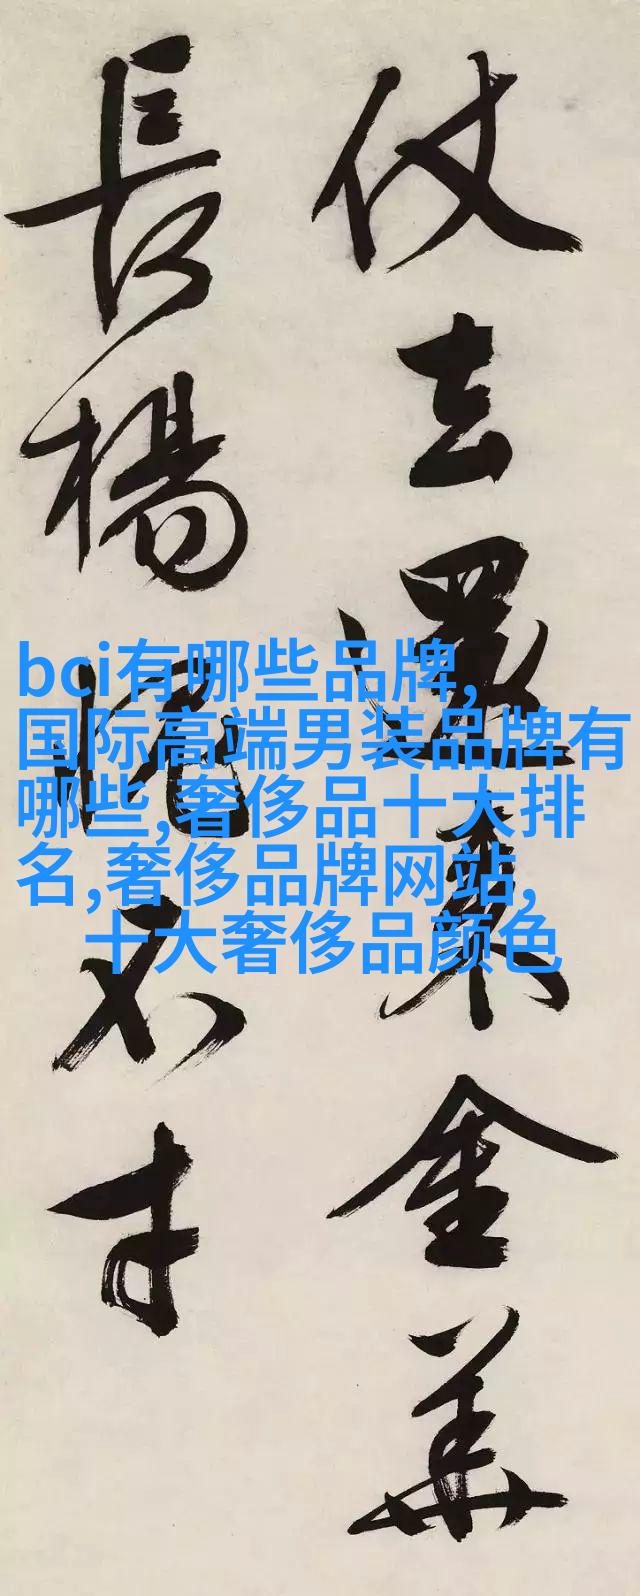 仗去還來金華
長楊愧不才
bci有哪些品牌,
国际高端男装品牌有
哪些,奢侈品十大排
名,奢侈品牌网站,
十大奢侈品颜色